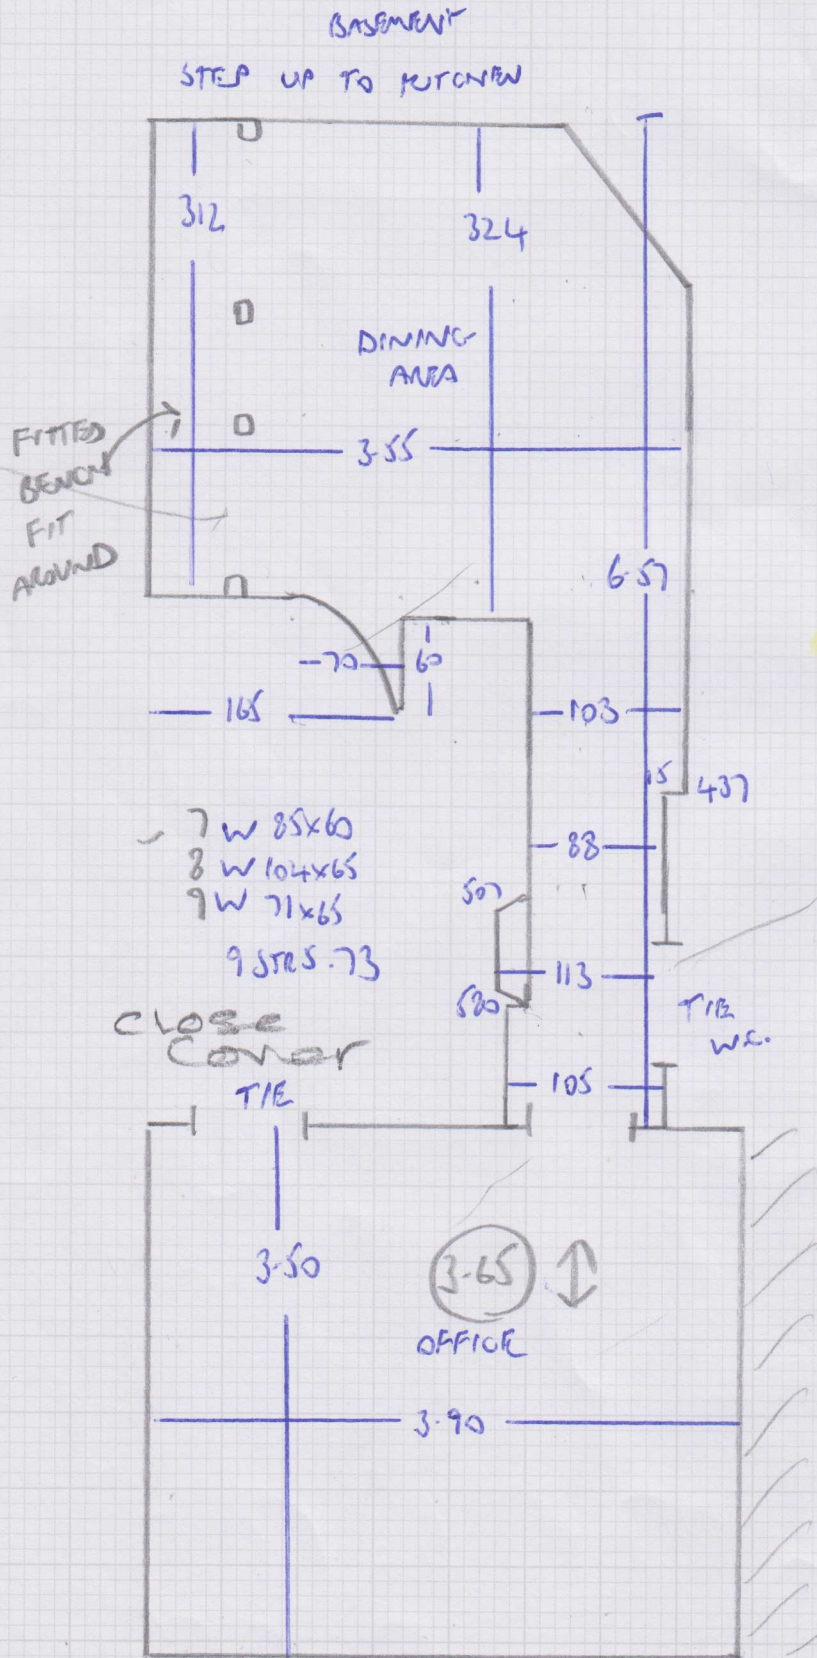 BASEMENT
STEP UP TO KITCHEN
312
324
DINING
AREA
FITTED
BENCH
FIT
AROUND
3.55
6.57
70
60
165
103
15
437
7 W 85x60
8 W 104x65
9 W 71x65
9 STRS .73
88
507
113
580
T/E
W.C.
CLOSE
COVER
T/E
105
3.50
3.65
OFFICE
3.90